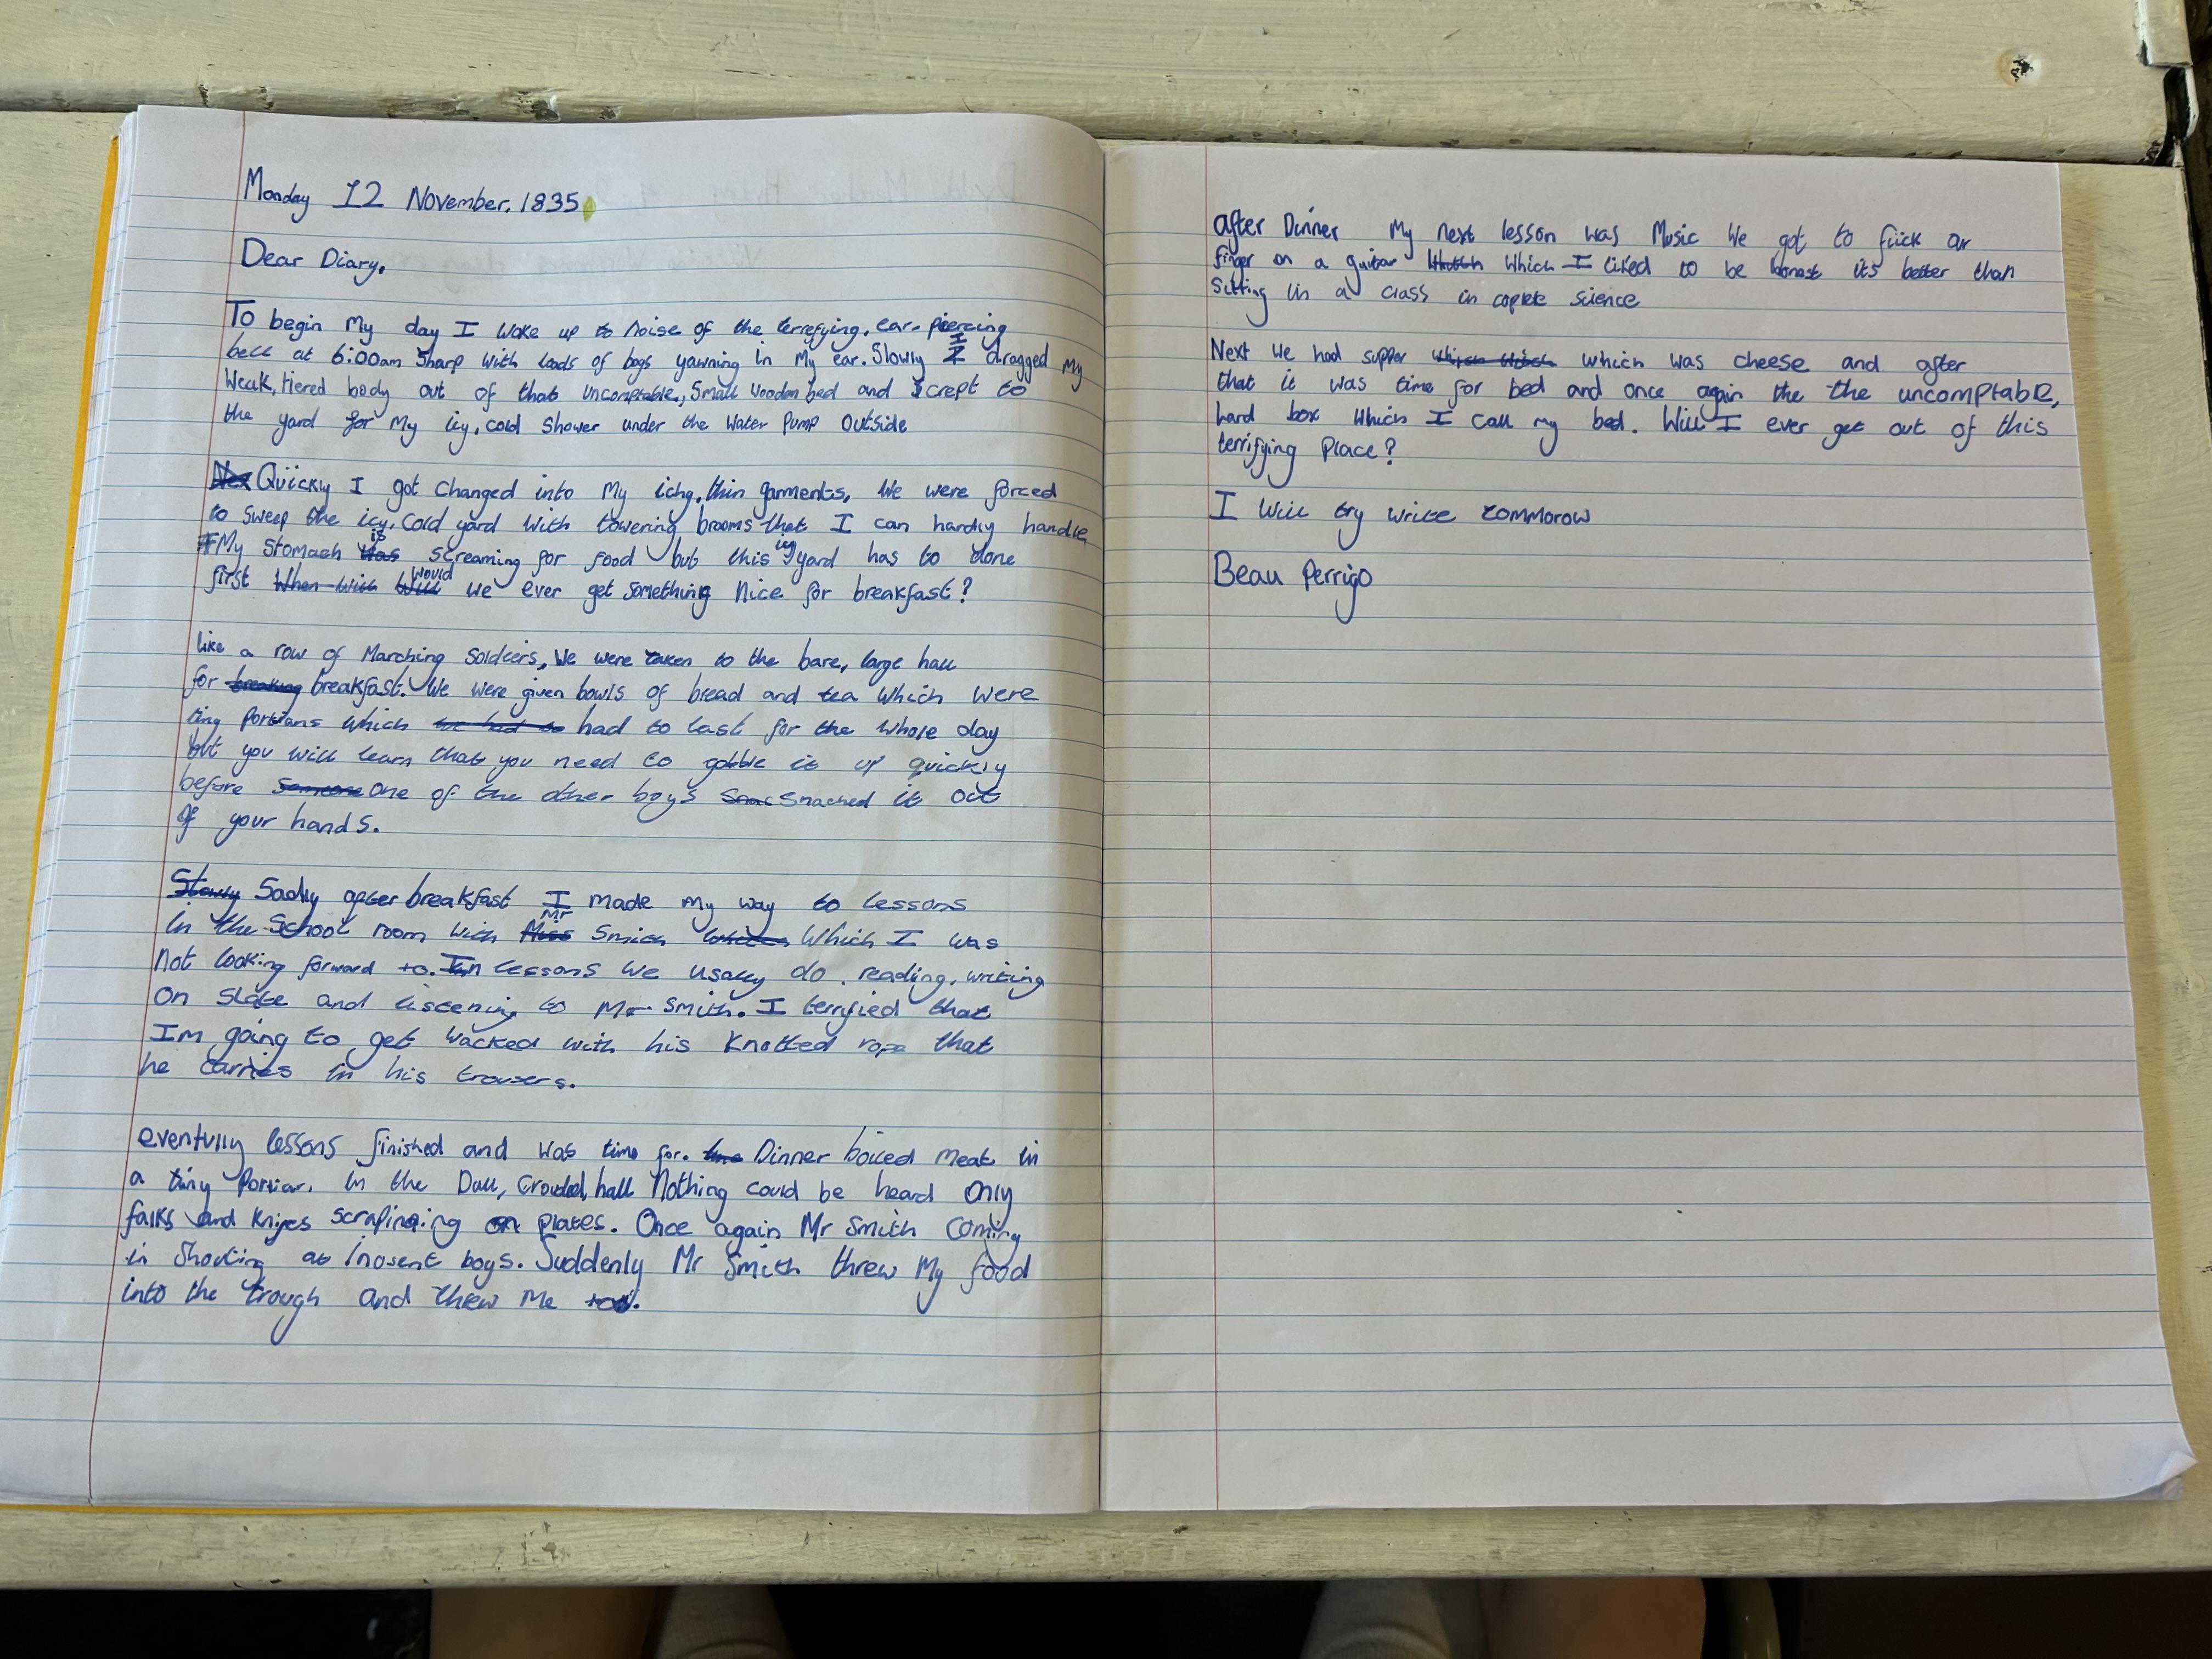 Monday 12 November. 1835
Dear Diary,
To begin My day I woke up to noise of the terrefying, ear-piercing
bell at 6:00am Sharp with loads of boys yawning in My ear. Slowly I dragged my
Weak, tiered body out of that uncomptable, Small wooden bed and crept to
the yard for My icy, cold shower under the Water Pump outside
Quickly I got changed into My ichy, thin garments, We were forced
to sweep the icy, cold yard with towering brooms that I can hardly handle
My stomach is screaming for food but this icy yard has to done
first would we ever get something nice for breakfast?
like a row of Marching Soldeers, We were taken to the bare, large hall
for breakfast. We were given bowls of bread and tea which were
tiny portians which had to last for the whole day
but you will learn that you need to gobble it up quickly
before one of the other boys snached it out
of your hands.
Sadly after breakfast I made my way to lessons
in the School room with Mr Smith which I was
not looking forward to. In lessons we usally do, reading, writing
on slate and listening to Mr Smith. I terrified that
Im going to get wacked with his knotted rope that
he carries in his trousers.
eventully lessons finished and was time for. Dinner boiled meat in
a tiny portian. In the Dull, Crowded, hall Nothing could be heard only
falks and knifes scraping on plates. Once again Mr Smith coming
in shouting at inosent boys. Suddenly Mr Smith threw My food
into the trough and threw me too.
after Dinner My next lesson was Music We got to flick ar
finger on a guitar which I liked to be honest its better than
sitting in a class in coplete science
Next we had supper which was cheese and after
that it was time for bed and once again the the uncomptable,
hard box which I call my bed. Will I ever get out of this
terrifying place?
I will try write tommorow
Beau Perrigo